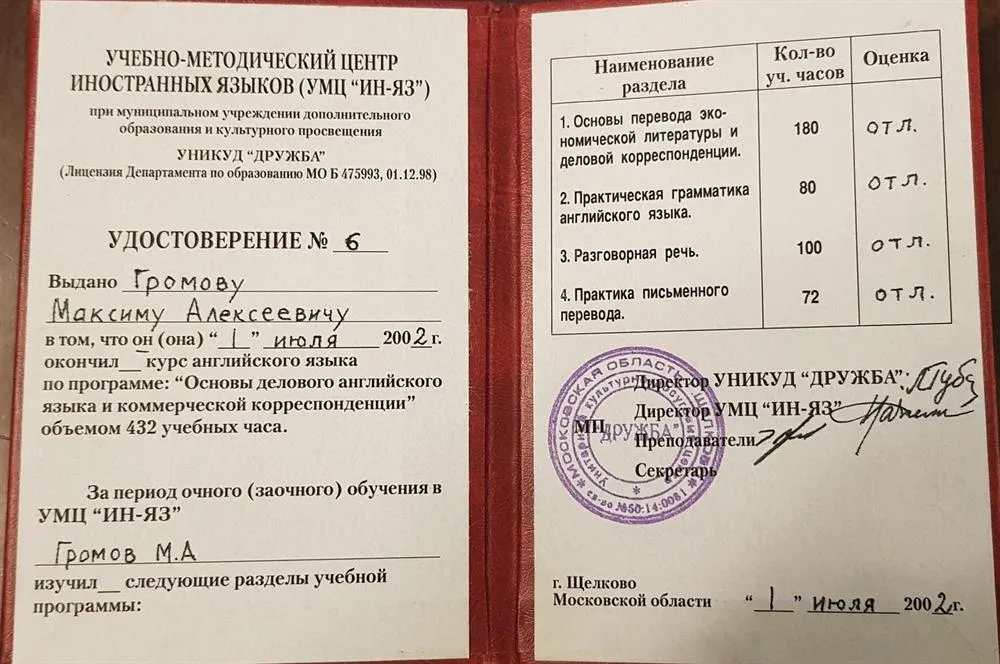 УЧЕБНО-МЕТОДИЧЕСКИЙ ЦЕНТР
ИНОСТРАННЫХ ЯЗЫКОВ (УМЦ “ИН-ЯЗ”)
при муниципальном учреждении дополнительного
образования и культурного просвещения
УНИКУД “ДРУЖБА”
(Лицензия Департамента по образованию МО Б 475993, 01.12.98)
УДОСТОВЕРЕНИЕ № 6
Выдано Громову
Максиму Алексеевичу
в том, что он (она) “ 1 ” июля 2002г.
окончил__ курс английского языка
по программе: “Основы делового английского
языка и коммерческой корреспонденции”
объемом 432 учебных часа.
За период очного (заочного) обучения в
УМЦ “ИН-ЯЗ”
Громов М.А
изучил__ следующие разделы учебной
программы:
Наименование раздела Кол-во уч. часов Оценка
1. Основы перевода эко-
номической литературы и 180 отл.
деловой корреспонденции.
2. Практическая грамматика 80 отл.
английского языка.
3. Разговорная речь. 100 отл.
4. Практика письменного 72 отл.
перевода.
Директор УНИКУД “ДРУЖБА”:
Директор УМЦ “ИН-ЯЗ”
МП
Преподаватели
Секретарь
МОСКОВСКАЯ ОБЛАСТЬ
“ДРУЖБА”
св-во №50:14:0081
г. Щелково
Московской области “ 1 ” июля 2002г.